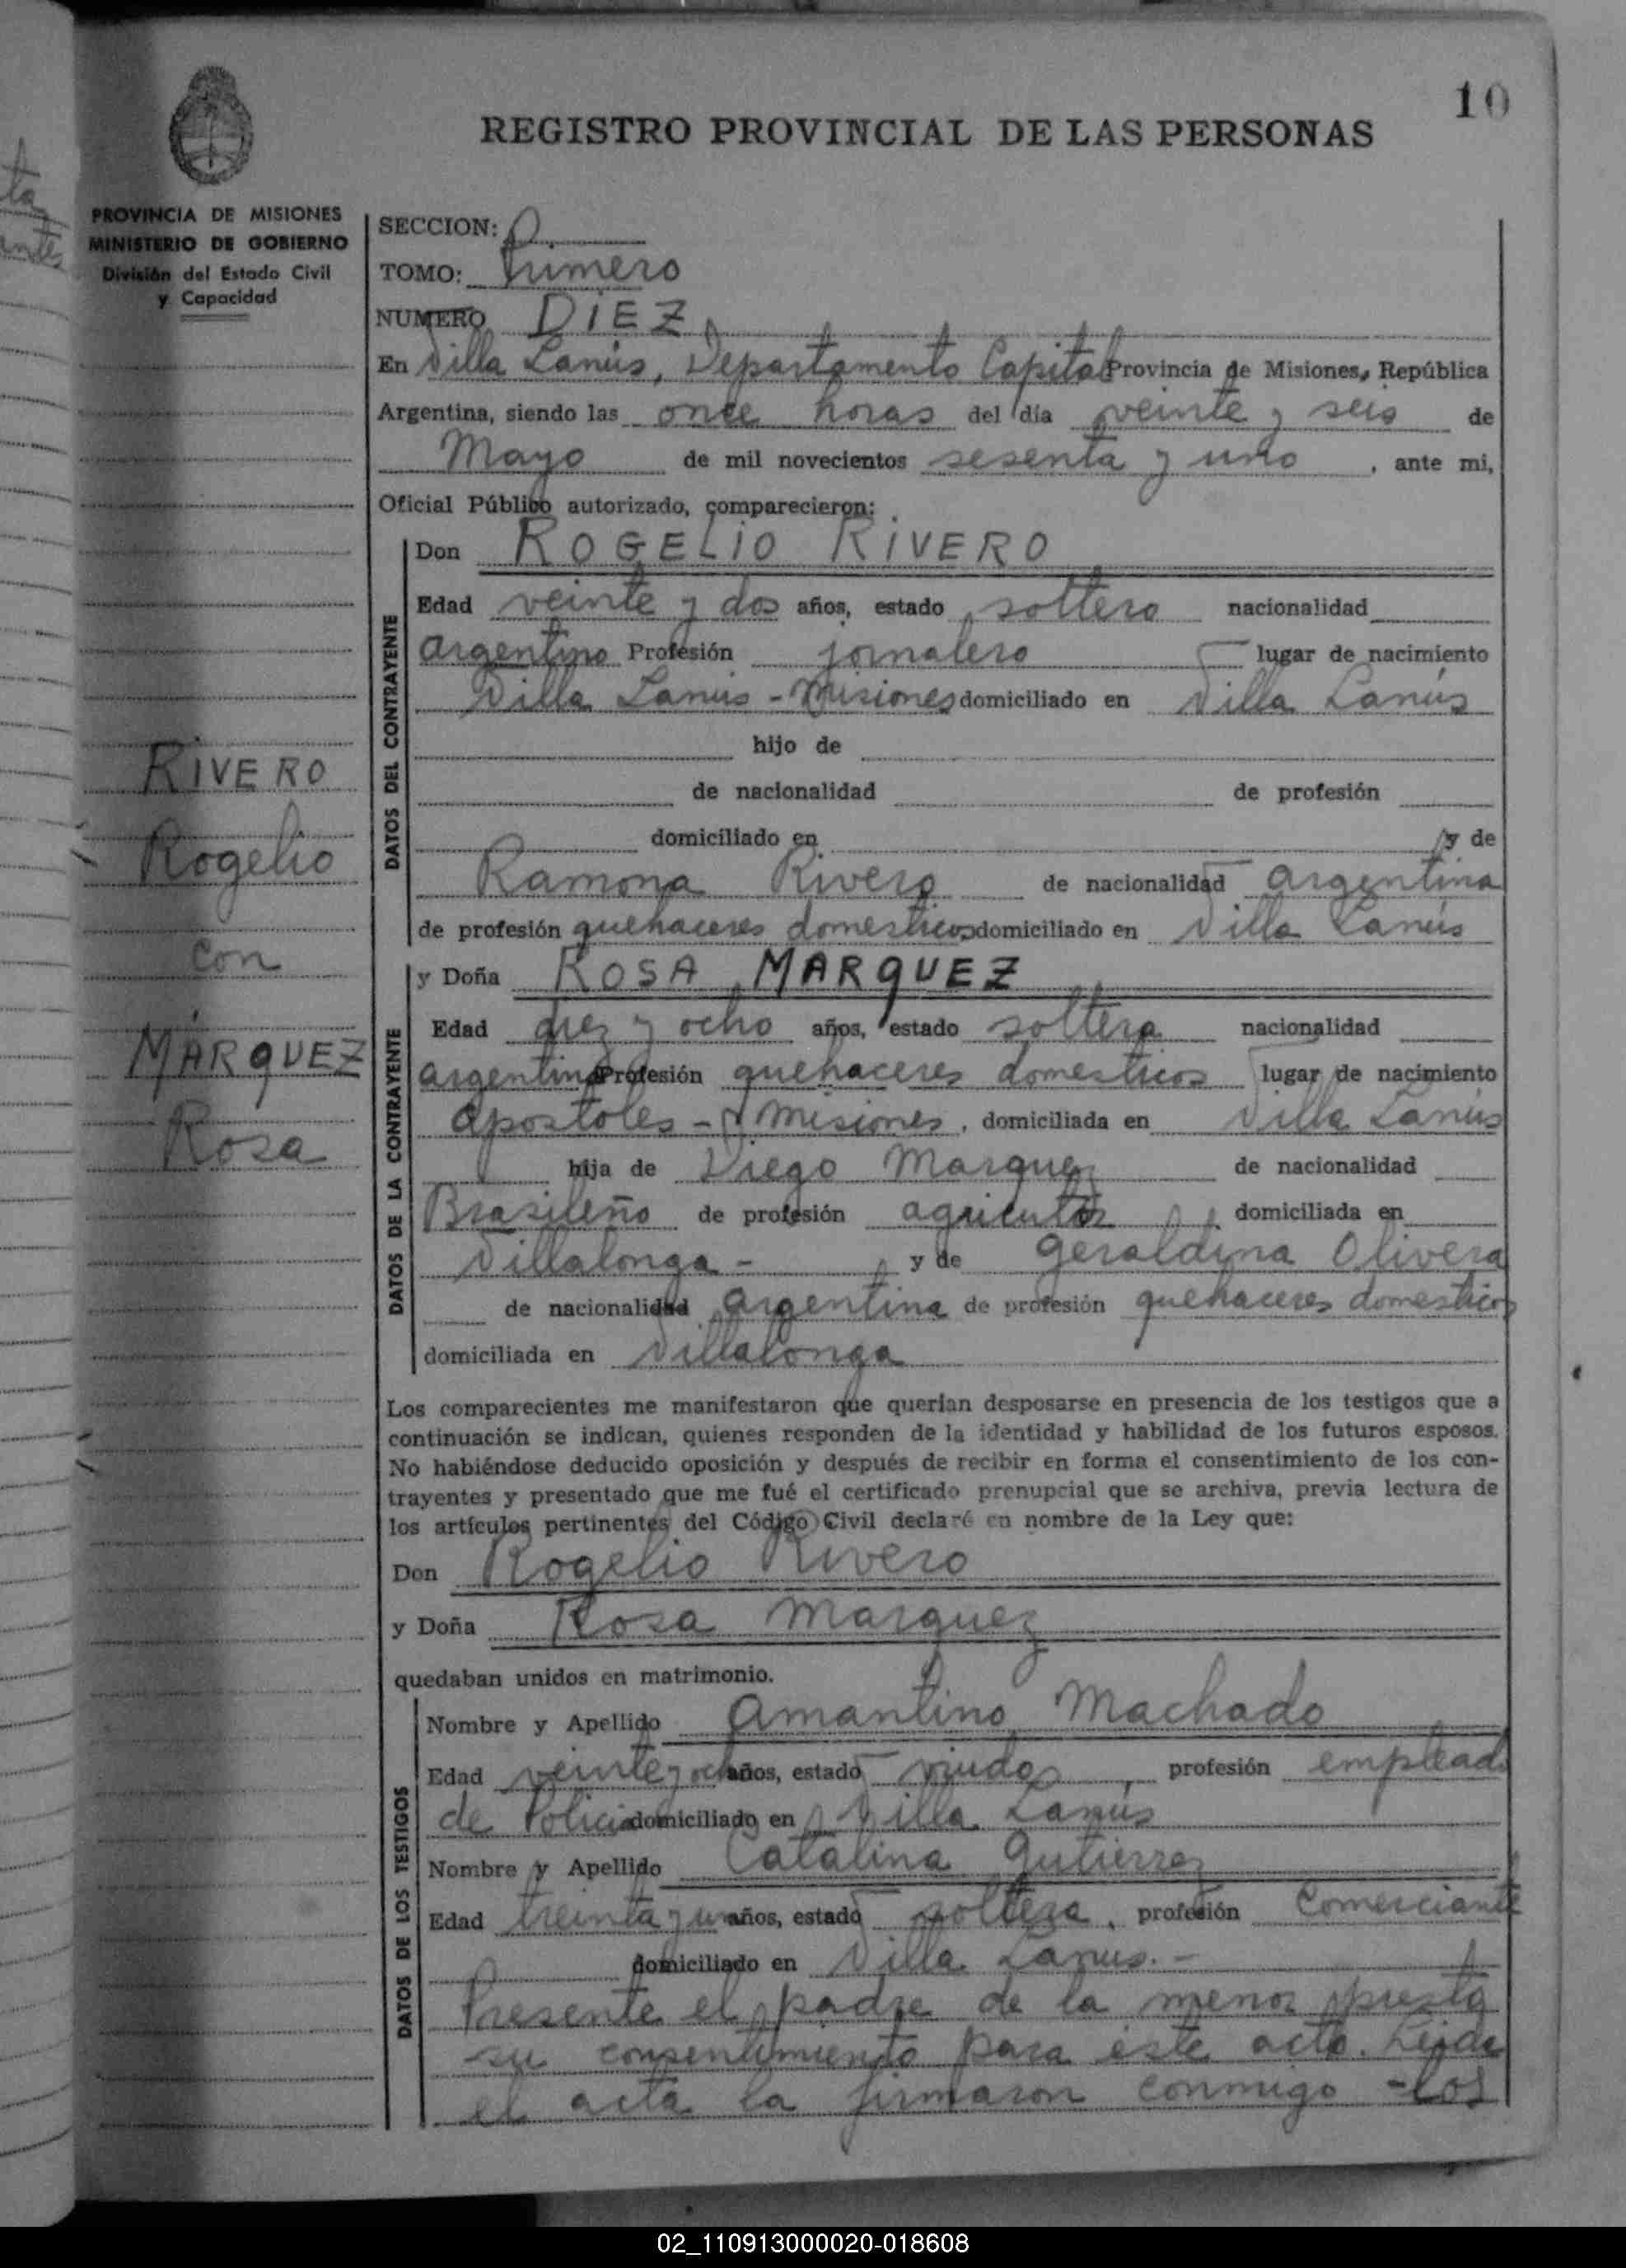 10
REGISTRO PROVINCIAL DE LAS PERSONAS
PROVINCIA DE MISIONES
MINISTERIO DE GOBIERNO
División del Estado Civil
y Capacidad
RIVERO
Rogelio
con
MARQUEZ
Rosa
SECCION:
TOMO: Primero
NUMERO DIEZ
En Villa Lanús, Departamento Capital Provincia de Misiones, República
Argentina, siendo las once horas del día veinte y seis de
Mayo de mil novecientos sesenta y uno, ante mi,
Oficial Público autorizado, comparecieron:
DATOS DEL CONTRAYENTE
Don ROGELIO RIVERO
Edad veinte y dos años, estado soltero nacionalidad
argentino Profesión jornalero lugar de nacimiento
Villa Lanús - Misiones domiciliado en Villa Lanús
hijo de
de nacionalidad de profesión
domiciliado en y de
Ramona Rivero de nacionalidad argentina
de profesión quehaceres domesticos domiciliado en Villa Lanús
DATOS DE LA CONTRAYENTE
y Doña ROSA MARQUEZ
Edad diez y ocho años, estado soltera nacionalidad
argentina Profesión quehaceres domesticos lugar de nacimiento
Apostoles - Misiones, domiciliada en Villa Lanús
hija de Diego Marquez de nacionalidad
Brasileño de profesión agricultor domiciliada en
Villalonga - y de Geraldina Olivera
de nacionalidad argentina de profesión quehaceres domesticos
domiciliada en Villalonga
Los comparecientes me manifestaron que querían desposarse en presencia de los testigos que a
continuación se indican, quienes responden de la identidad y habilidad de los futuros esposos.
No habiéndose deducido oposición y después de recibir en forma el consentimiento de los con-
trayentes y presentado que me fué el certificado prenupcial que se archiva, previa lectura de
los artículos pertinentes del Código Civil declaré en nombre de la Ley que:
Don Rogelio Rivero
y Doña Rosa Marquez
quedaban unidos en matrimonio.
DATOS DE LOS TESTIGOS
Nombre y Apellido Amantino Machado
Edad veinte y ocho años, estado viudo, profesión empleado
de Policia domiciliado en Villa Lanús
Nombre y Apellido Catalina Gutierrez
Edad treinta y un años, estado soltera, profesión Comerciante
domiciliado en Villa Lanus.-
Presente el padre de la menor presta
su consentimiento para este acto. Leida
el acta la firmaron conmigo - los
02_110913000020-018608